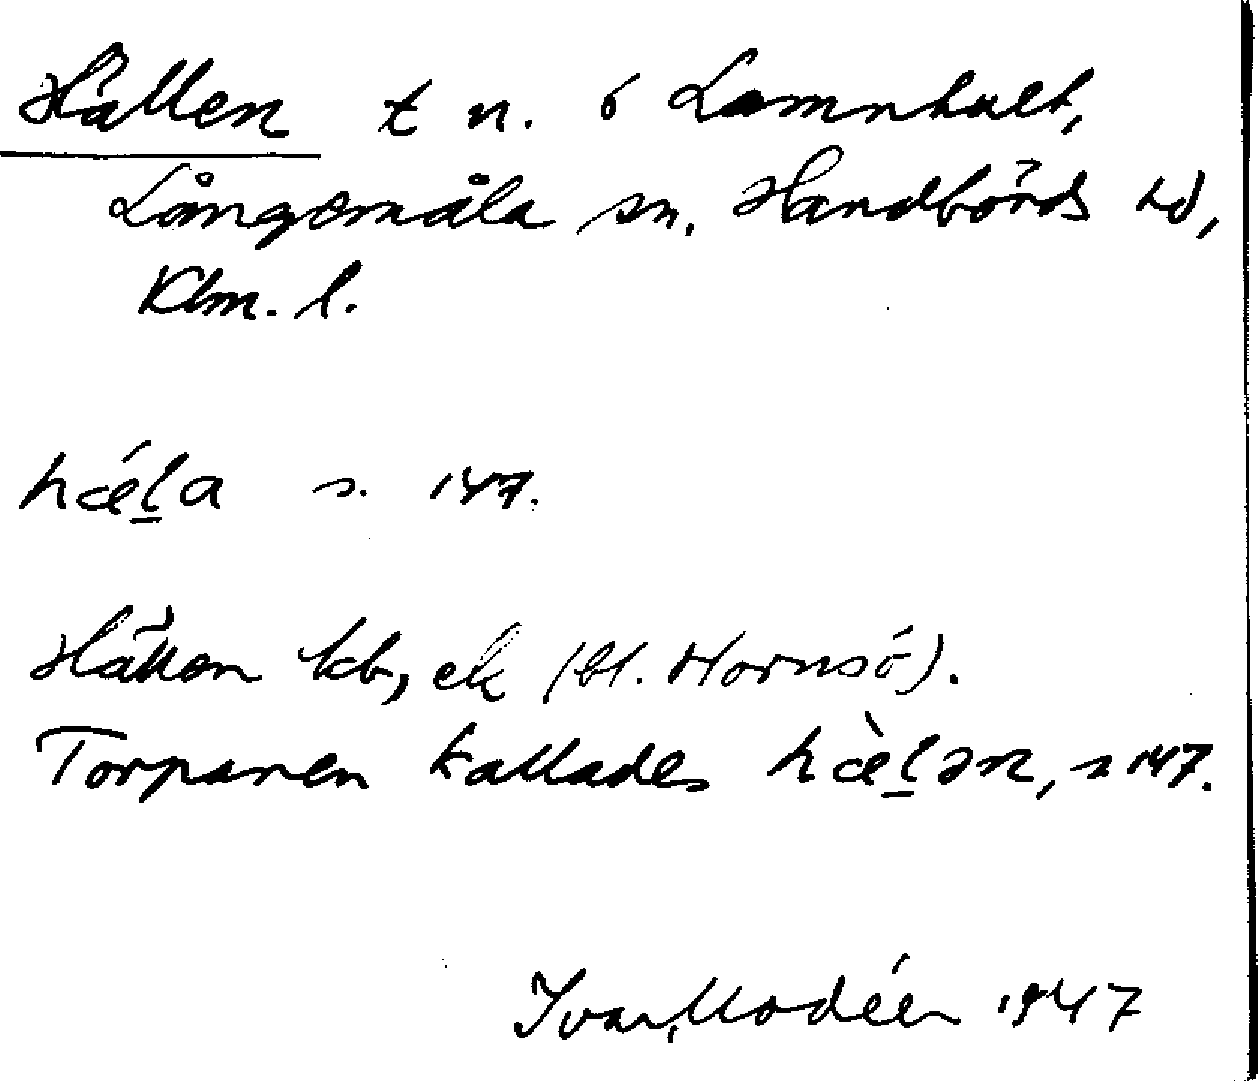 Hällen t n. ö Lamnhult,
Långemåla sn. Handbörds hd,
Klm. l.
hǽl̠a s. 147.
Hällen kb, ek (bl. Hornsö).
Torparen kallades hæ̀l̠ən, s 147.
Ivar Modéer 1947